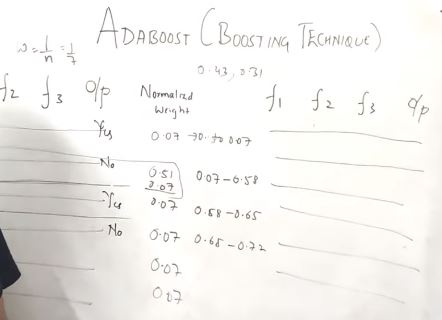 ADABOOST (BOOSTING TECHNIQUE)
w = 1/n = 1/7
0.43, 0.31
f2 f3 O/p Normalized Weight f1 f2 f3 O/p
Yes 0.07 → 0. to 0.07
No 0.51 0.07 - 0.58
0.07
Yes 0.07 0.58 - 0.65
No 0.07 0.65 - 0.72
0.07
0.07